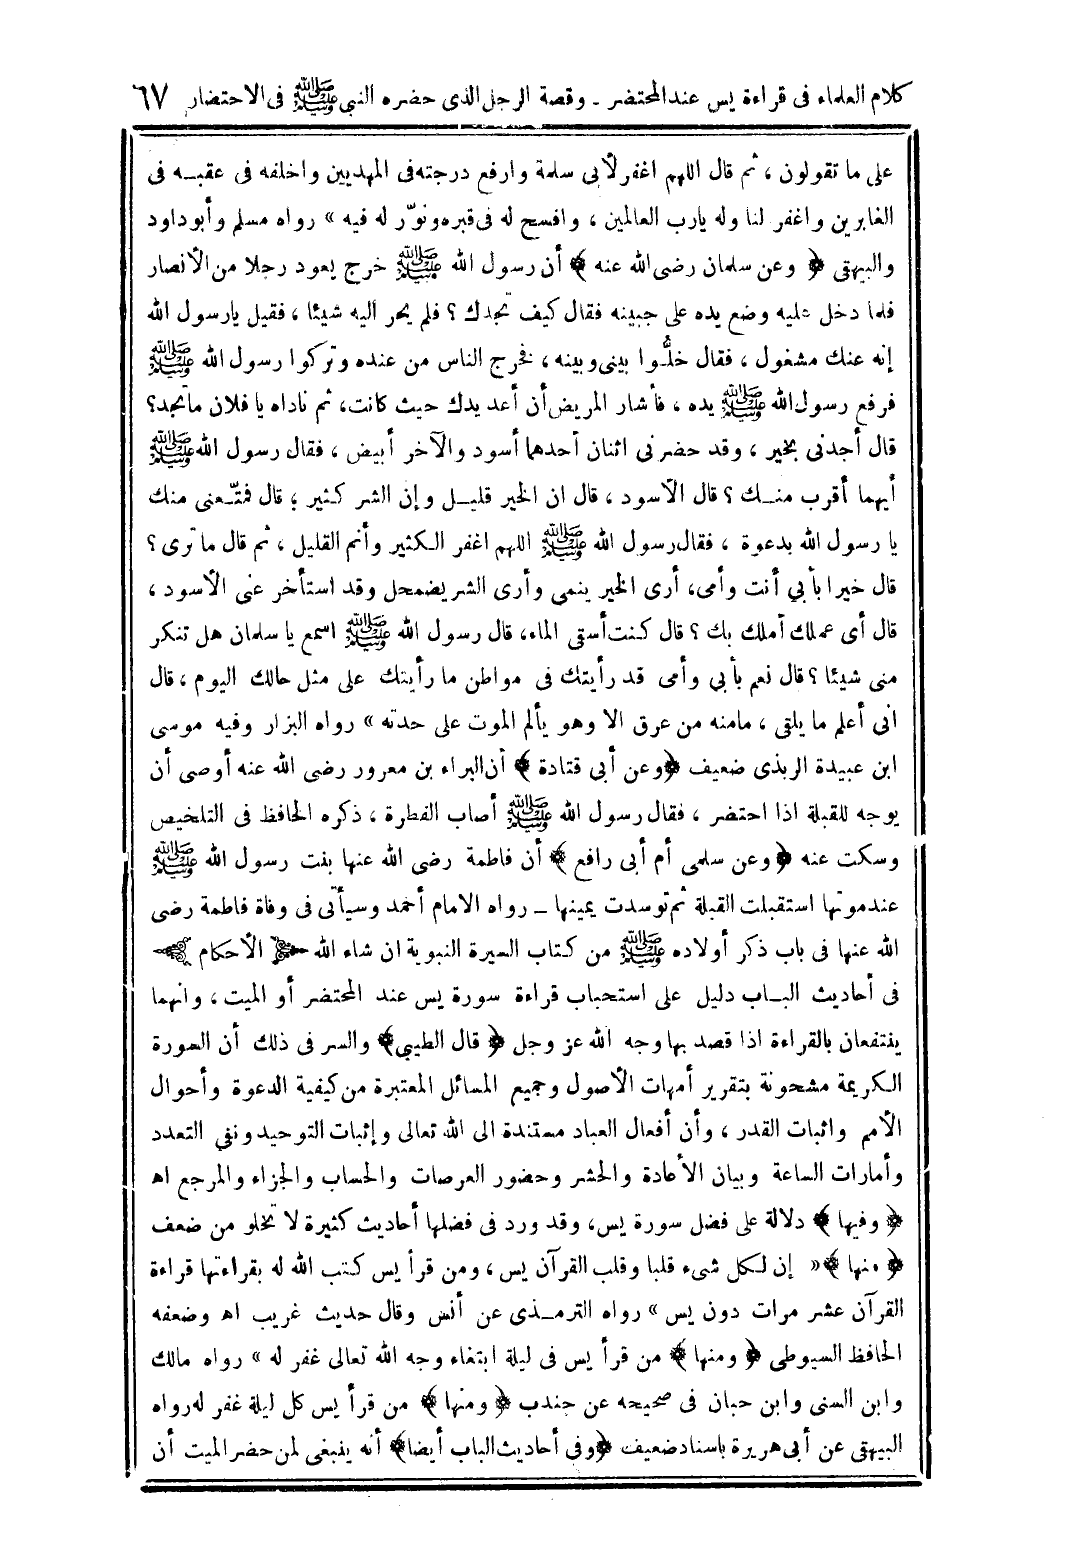 كلام العلماء فى قراءة يس عند المحتضر ـ وقصة الرجل الذى حضره النبى ﷺ فى الاحتضار ٦٧
على ما تقولون ، ثم قال اللهم اغفر لأبى سلمة وارفع درجته فى المهديين واخلفه فى عقبه فى
الغابرين واغفر لنا وله يارب العالمين ، وافسح له فى قبره ونوّر له فيه » رواه مسلم وأبو داود
والبيهقى ﴿ وعن سلمان رضى الله عنه ﴾ أن رسول الله ﷺ خرج يعود رجلا من الأنصار
فلما دخل عليه وضع يده على جبينه فقال كيف تجدك ؟ فلم يحر اليه شيئا ، فقيل يارسول الله
إنه عنك مشغول ، فقال خلُّوا بينى وبينه ، فخرج الناس من عنده وتركوا رسول الله ﷺ
فرفع رسول الله ﷺ يده ، فأشار المريض أن أعد يدك حيث كانت، ثم ناداه يا فلان ماتجد؟
قال أجدنى بخير ، وقد حضرنى اثنان أحدهما أسود والآخر أبيض ، فقال رسول الله ﷺ
أيهما أقرب منك ؟ قال الأسود ، قال ان الخير قليل وإن الشر كثير ، قال فمتّعنى منك
يا رسول الله بدعوة ، فقال رسول الله ﷺ اللهم اغفر الكثير وأنم القليل ، ثم قال ما ترى ؟
قال خيرا بأبي أنت وأمى، أرى الخير ينمى وأرى الشر يضمحل وقد استأخر عنى الأسود ،
قال أى عملك أملك بك ؟ قال كنت أسقى الماء، قال رسول الله ﷺ اسمع يا سلمان هل تنكر
منى شيئا ؟ قال نعم بأبي وأمى قد رأيتك فى مواطن ما رأيتك على مثل حالك اليوم ، قال
انى أعلم ما يلقى ، مامنه من عرق الا وهو يألم الموت على حدته » رواه البزار وفيه موسى
ابن عبيدة الربذى ضعيف ﴿ وعن أبى قتادة ﴾ أن البراء بن معرور رضى الله عنه أوصى أن
يوجه للقبلة اذا احتضر ، فقال رسول الله ﷺ أصاب الفطرة ، ذكره الحافظ فى التلخيص
وسكت عنه ﴿ وعن سلمى أم أبى رافع ﴾ أن فاطمة رضى الله عنها بنت رسول الله ﷺ
عند موتها استقبلت القبلة ثم توسدت يمينها ـ رواه الامام أحمد وسيأتى فى وفاة فاطمة رضى
الله عنها فى باب ذكر أولاده ﷺ من كتاب السيرة النبوية ان شاء الله الأحكام
فى أحاديث الباب دليل على استحباب قراءة سورة يس عند المحتضر أو الميت ، وانهما
ينتفعان بالقراءة اذا قصد بها وجه الله عز وجل ﴿ قال الطيبي ﴾ والسر فى ذلك أن السورة
الكريمة مشحونة بتقرير أمهات الأصول وجميع المسائل المعتبرة من كيفية الدعوة وأحوال
الأمم واثبات القدر ، وأن أفعال العباد مستندة الى الله تعالى وإثبات التوحيد ونفى التعدد
وأمارات الساعة وبيان الأعادة والحشر وحضور العرصات والحساب والجزاء والمرجع اه
﴿ وفيها ﴾ دلالة على فضل سورة يس، وقد ورد فى فضلها أحاديث كثيرة لا تخلو من ضعف
﴿ منها ﴾ « إن لكل شىء قلبا وقلب القرآن يس ، ومن قرأ يس كتب الله له بقراءتها قراءة
القرآن عشر مرات دون يس » رواه الترمذى عن أنس وقال حديث غريب اه وضعفه
الحافظ السيوطى ﴿ ومنها ﴾ من قرأ يس فى ليلة ابتغاء وجه الله تعالى غفر له » رواه مالك
وابن السنى وابن حبان فى صحيحه عن جندب ﴿ ومنها ﴾ من قرأ يس كل ليلة غفر له رواه
البيهقى عن أبى هريرة باسناد ضعيف ﴿ وفى أحاديث الباب أيضا ﴾ أنه ينبغى لمن حضر الميت أن